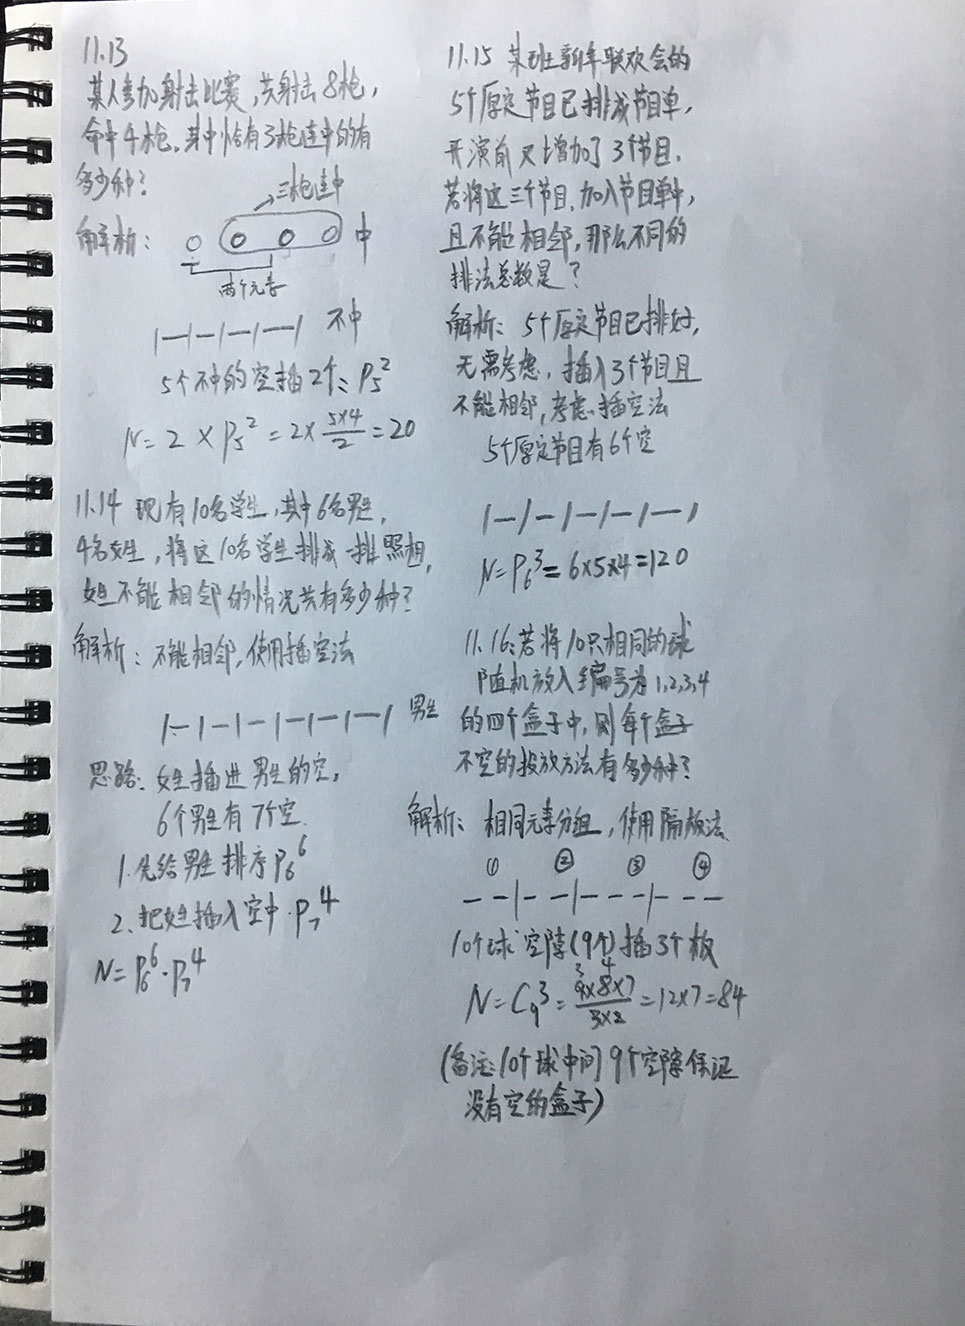 11.13
某人参加射击比赛,共射击8枪,
命中4枪,其中恰有3枪连中的有
多少种?
三枪连中
解析: 中
两个元素
不中
5个不中的空插2个: P₅²
N = 2 × P₅² = 2× 5×4/2 = 20
11.14 现有10名学生,其中6名男生,
4名女生,将这10名学生排成一排照相,
女生不能相邻的情况共有多少种?
解析: 不能相邻,使用插空法
男生
思路: 女生插进男生的空,
6个男生有7个空.
1.先给男生排序P₆⁶
2.把女生插入空中·P₇⁴
N= P₆⁶·P₇⁴
11.15 某班新年联欢会的
5个原定节目已排成节目单,
开演前又增加了3个节目.
若将这三个节目,加入节目单中,
且不能相邻,那么不同的
排法总数是?
解析: 5个原定节目已排好,
无需考虑,插入3个节目且
不能相邻,考虑插空法
5个原定节目有6个空
N=P₆³=6×5×4=120
11.16:若将10只相同的球
随机放入编号为1,2,3,4
的四个盒子中,则每个盒子
不空的投放方法有多少种?
解析: 相同元素分组,使用隔板法.
① ② ③ ④
10个球 空隙(9个)插3个板
N=C₉³= 9×8×7/3×2 =12×7=84
(备注:10个球中间9个空隙保证
没有空的盒子)